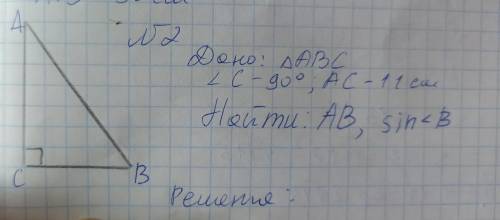 A
N2
Дано: △ABC
∠C-90°; AC-11см
Найти: AB, sin∠B
C
B
Решение: